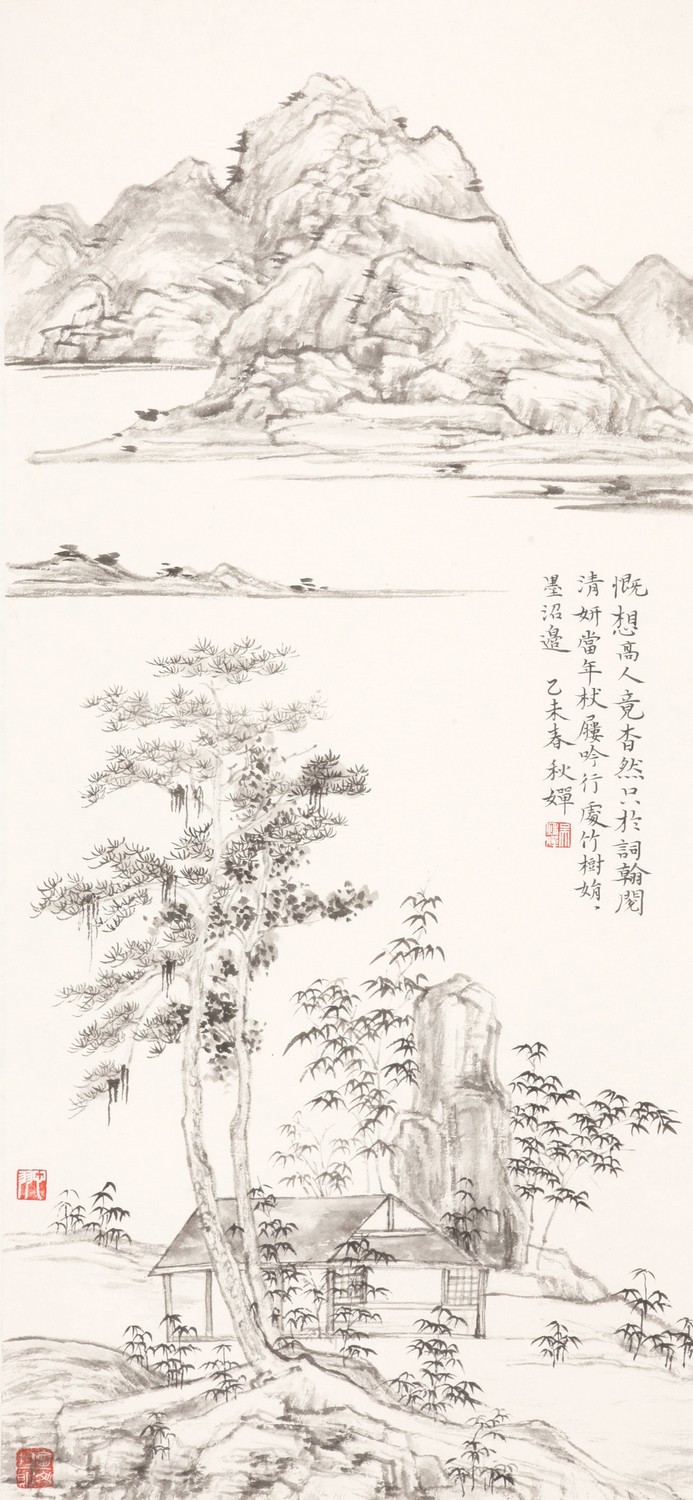 慨想高人竟杳然只於詞翰閱
清妍當年杖屨吟行處竹樹娟、
墨沼邉 乙未春秋嬋